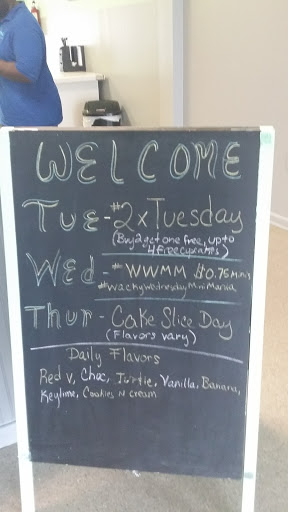 WELCOME
Tue - #2xTuesday
(Buy 2 get one free, up to
4 free cupcakes)
Wed - #WWMM $0.75 Minis
#WackyWednesdayMiniMania
Thur - Cake Slice Day
(Flavors vary)
Daily Flavors
Red v, Choc, Turtle, Vanilla, Banana,
Keylime, Cookies N cream